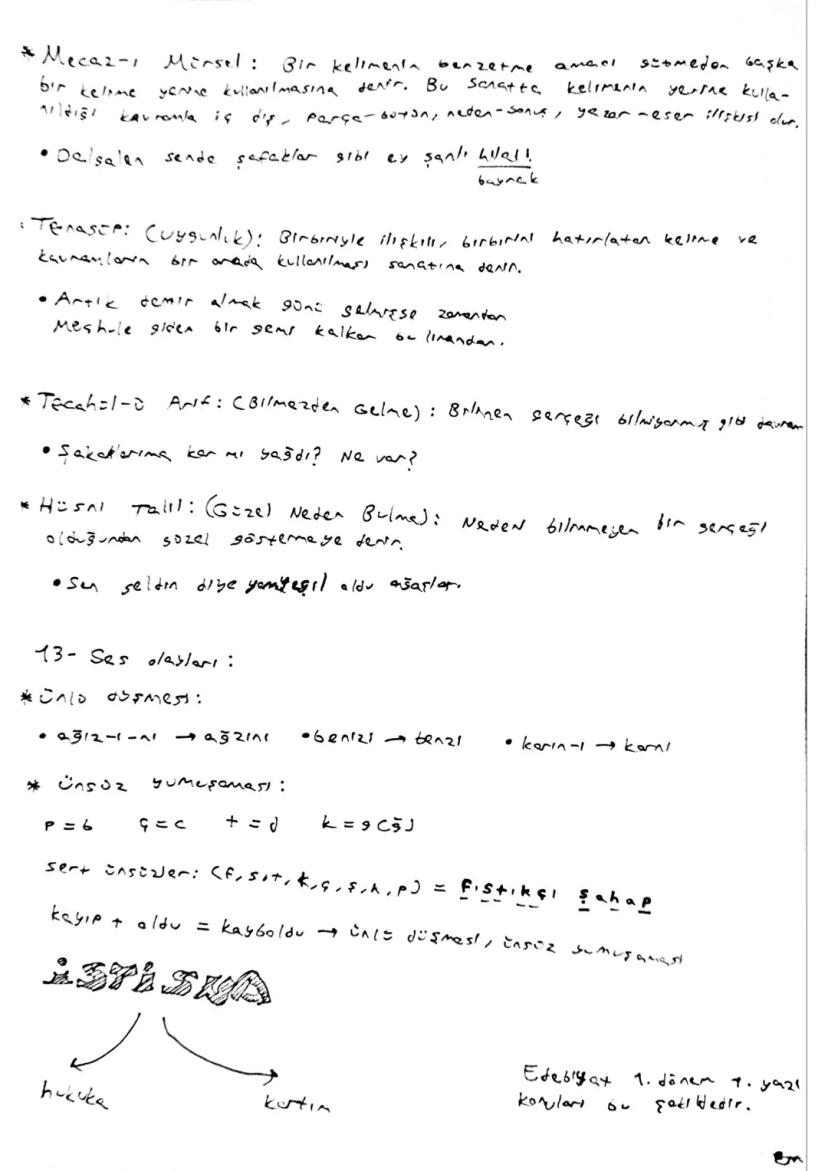 * Mecaz-ı Mürsel : Bir kelimenin benzetme amacı gütmeden başka
bir kelime yerine kullanılmasına denir. Bu sanatta kelimenin yerine kulla-
nıldığı kavramla iç dış, parça-bütün, neden-sonuç, yazar-eser ilişkisi olur.
• Dalgalan sende şafaklar gibi ey şanlı hilal!
bayrak
: Tenasüp: (Uygunluk): Birbiriyle ilişkili, birbirini hatırlatan kelime ve
kavramların bir arada kullanılması sanatına denir.
• Artık demir almak günü gelmişse zamandan
Meçhule giden bir gemi kalkar bu limandan.
* Tecahül-ü Arif: (Bilmezden Gelme): Bilinen gerçeği bilmiyormuş gibi davran
• Şakaklarıma kar mı yağdı? Ne var?
* Hüsni Talil: (Güzel Neden Bulma): Neden bilinmeyen bir gerçeği
olduğundan güzel göstermeye denir.
• Sen geldin diye yemyeşil oldu ağaçlar.
13- Ses olayları :
* ünlü düşmesi:
• ağız-ı-nı → ağzını • benizi → benzi • karın-ı → karnı
* ünsüz yumuşaması:
p = b ç = c t = d k = g (ğ)
sert ünsüzler: (f, s, t, k, ç, ş, h, p) = fıstıkçı şahap
kayıp + oldu = kayboldu → ünlü düşmesi, ünsüz yumuşaması
istisna
hukuka kartın
Edebiyat 1. dönem 1. yazı
konuları bu şekildedir.